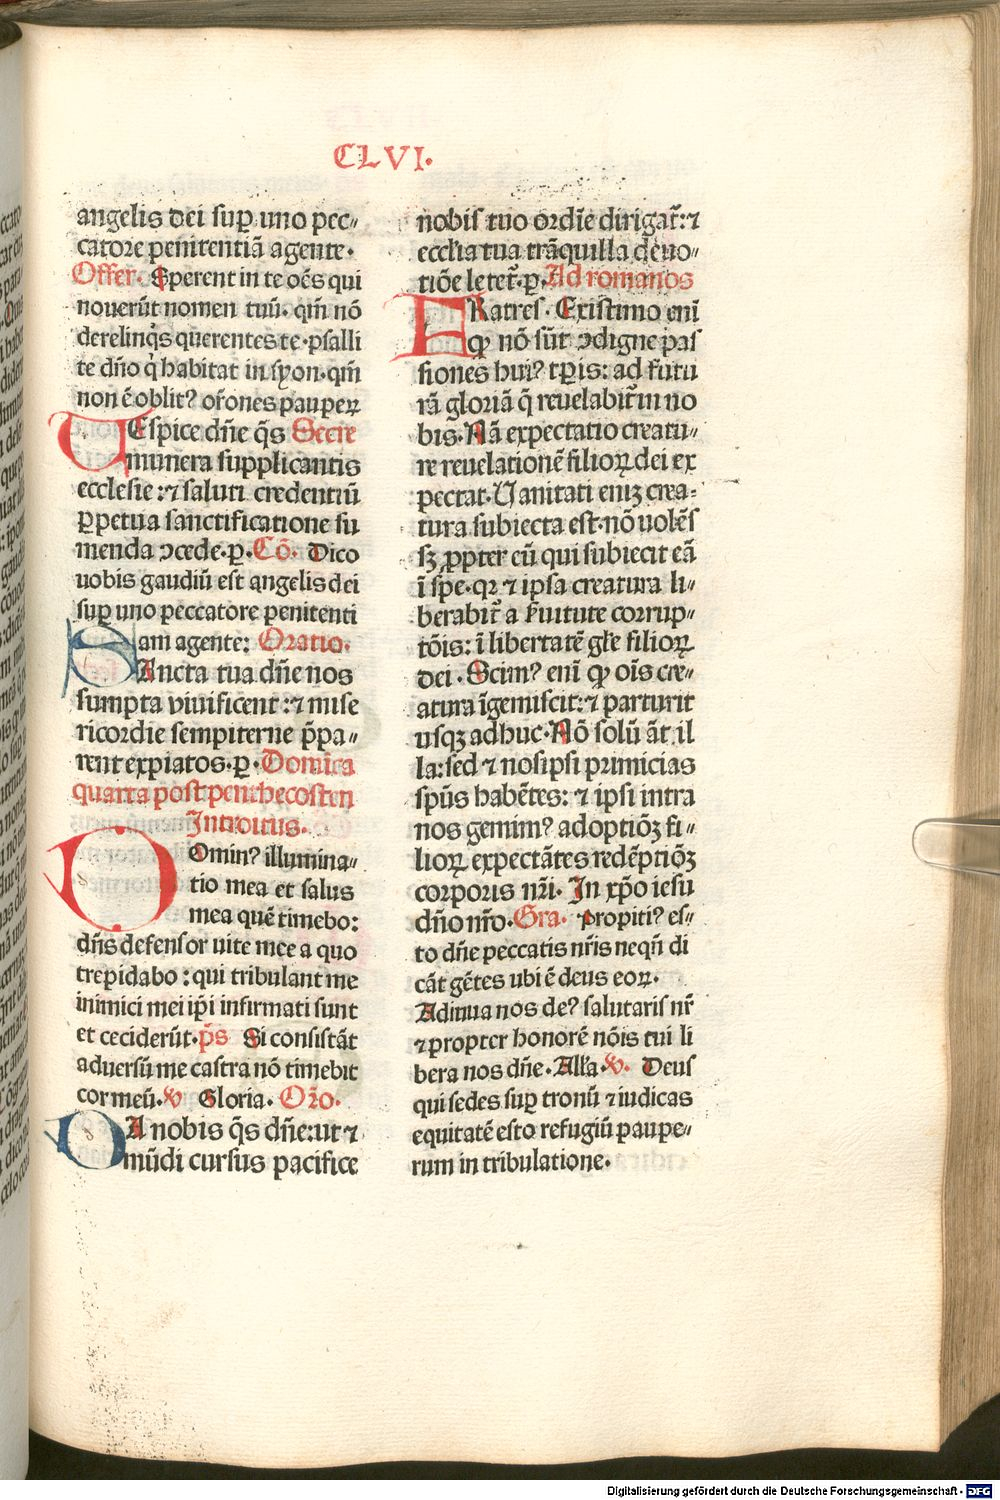 CLVI.
angelis dei sup̱ uno pec⸗
catore penitentiā agente.
Offer. Sperent in te oēs qui
nouerūt nomen tuū. qm̄ nō
derelinq̄s querentes te. psalli
te dn̄o q̇ habitat in syon. qm̄
non ē oblitꝰ or̄ones pauperꝝ
REspice dn̄e q̄s Secre
munera supplicantis
ecclesie: ⁊ saluti credentiū
ꝑpetua sanctificatione su
menda ꝯcede. p. Cō. Dico
uobis gaudiū est angelis dei
sup̱ uno peccatore penitenti
am agente: Oratio.
SAncta tua dn̄e nos
sumpta viuificent: ⁊ mise
ricordie sempiterne p̄pa⸗
rent expiatos. p. Domīca
quarta post penthecosten
Introitus.
DOminꝰ illumina⸗
tio mea et salus
mea quē timebo:
dn̄s defensor uite mee a quo
trepidabo: qui tribulant me
inimici mei ip̄i infirmati sunt
et ceciderūt. p̄s Si consistāt
aduersū me castra nō timebit
cor meū. ℣ Gloria. Or̄o.
DA nobis q̄s dn̄e: ut ⁊
mūdi cursus pacifice
nobis tuo ordīe dirigat̄: ⁊
eccl̄ia tua trāquilla deuo⸗
tiōe letet̄. p. Ad romanos
FRatres. Existimo enī
ꝙ nō sūt ꝯdigne pas
siones huiꝰ tp̄is: ad futu
rā gloriā q̄ reuelabit̄ in no
bis. Nā expectatio creatu⸗
re reuelationē filioꝝ dei ex
pectat. Uanitati eniꝫ crea⸗
tura subiecta est. nō uolēs
sꝫ ꝓpter eū qui subiecit eā
ī spe. qꝛ ⁊ ipsa creatura li⸗
berabit̄ a s̄uitute corrup⸗
tōis: ī libertatē gl̄e filioꝝ
dei. Scimꝰ enī ꝙ oīs cre⸗
atura īgemiscit: ⁊ parturit
usqꝫ adhuc. Nō solū āt il
la: sed ⁊ nosipsi primicias
spūs habētes: ⁊ ipsi intra
nos gemimꝰ adoptiōꝫ fi⸗
lioꝝ expectātes redēptiōꝫ
corporis nr̄i. In xp̄o iesu
dn̄o nr̄o. Gra. Propitiꝰ es⸗
to dn̄e peccatis nr̄is neqn̄ di
cāt gētes ubi ē deus eoꝝ.
Adiuua nos deꝰ salutaris nr̄
⁊ propter honorē nōis tui li
bera nos dn̄e. Alл̄a. ℣. Deus
qui sedes sup̱ tronū ⁊ iudicas
equitatē esto refugiū paupe⸗
rum in tribulatione.
Digitalisierung gefördert durch die Deutsche Forschungsgemeinschaft - DFG